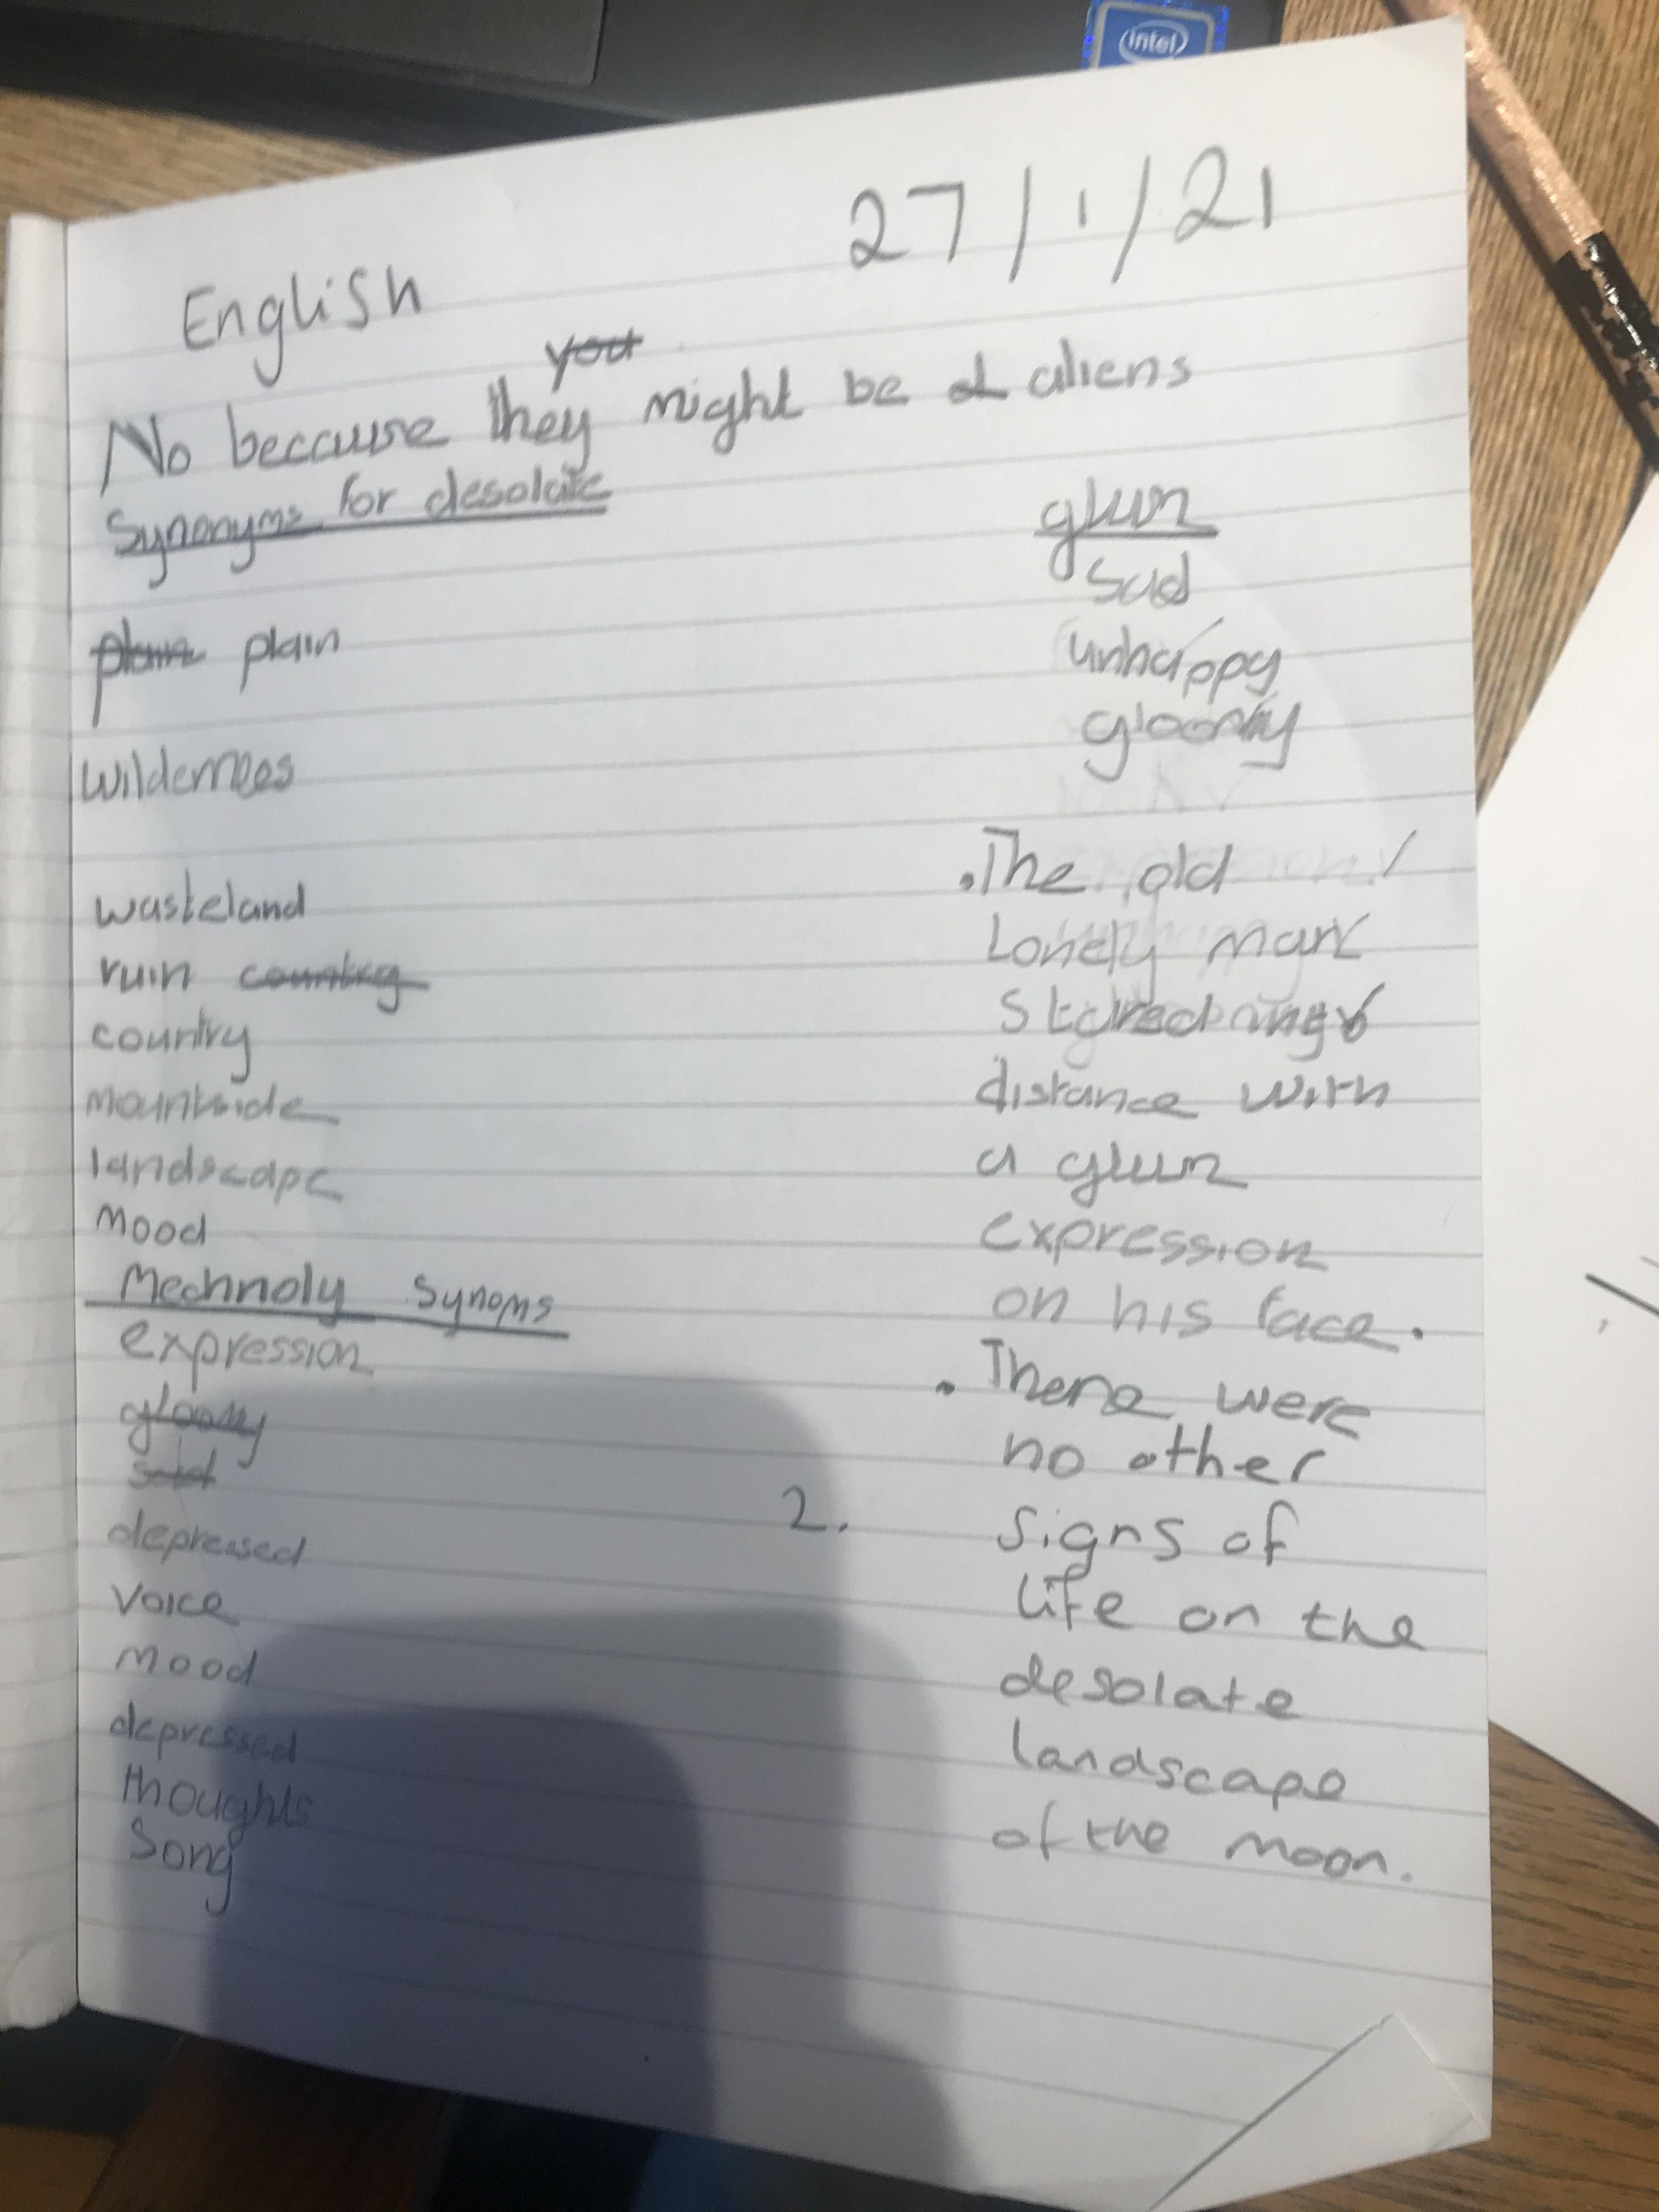 intel
27/1/21
English
you
No because they might be al aliens
Synonyms for desolate
plain
wilderness
wasteland
ruin country
country
landscape
mood
Mechnoly Synoms
expression
gloomy
sad
depressed
voice
mood
depressed
thoughts
song
glum
sad
unhappy
gloomy
.The old
Lonely man
Stared
distance with
a glum
expression
on his face.
. There were
no other
2. signs of
life on the
desolate
landscape
of the moon.